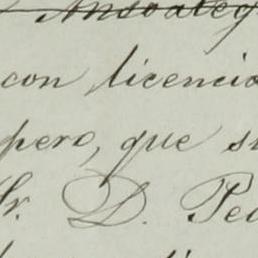 Ansoateg
con licencia
pero, que s
Sr. D. Ped